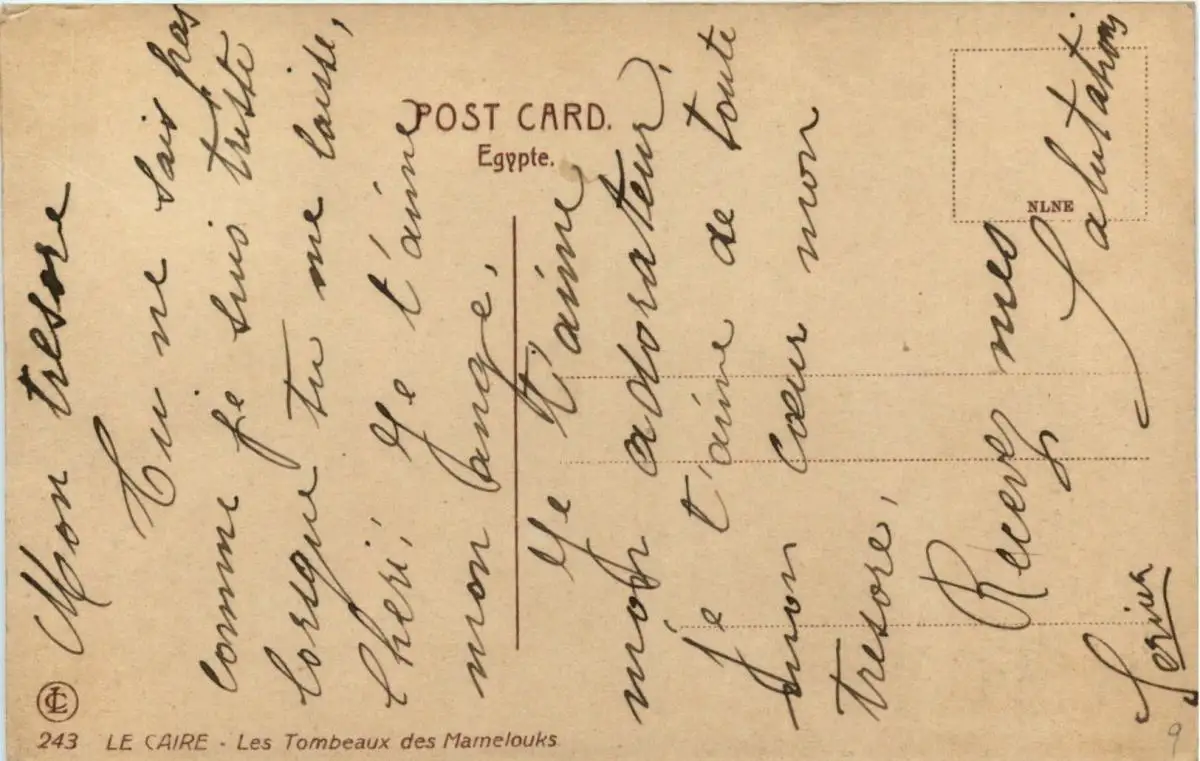 POST CARD.
Egypte.
NLNE
Mon tresore
Tu ne sais pas
comme je suis triste
lorsque tu me laisse,
Cheri, Je t'aime
mon ange,
Je t'aime
mon adorateur,
Je t'aime de toute
mon cœur mon
tresore,
Recevez mes
Salutations
LC
243 LE CAIRE - Les Tombeaux des Mamelouks
9